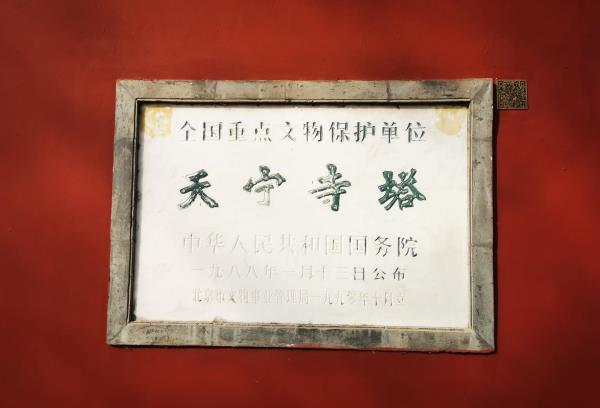 全国重点文物保护单位
天宁寺塔
中华人民共和国国务院
一九八八年一月十三日公布
北京市文物事业管理局一九九零年十月立